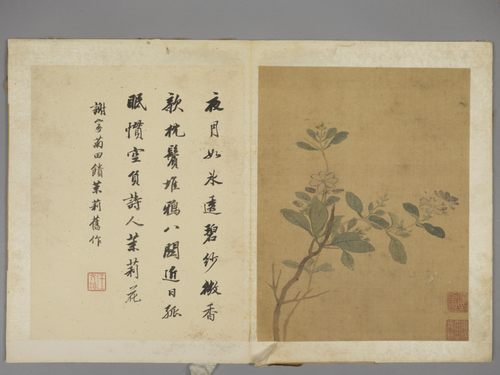 夜月如氷透碧紗微香
欹枕鬢堆鴉八關近日孤
眠慣空負詩人茉莉花
謝家菊田饋茉莉舊作